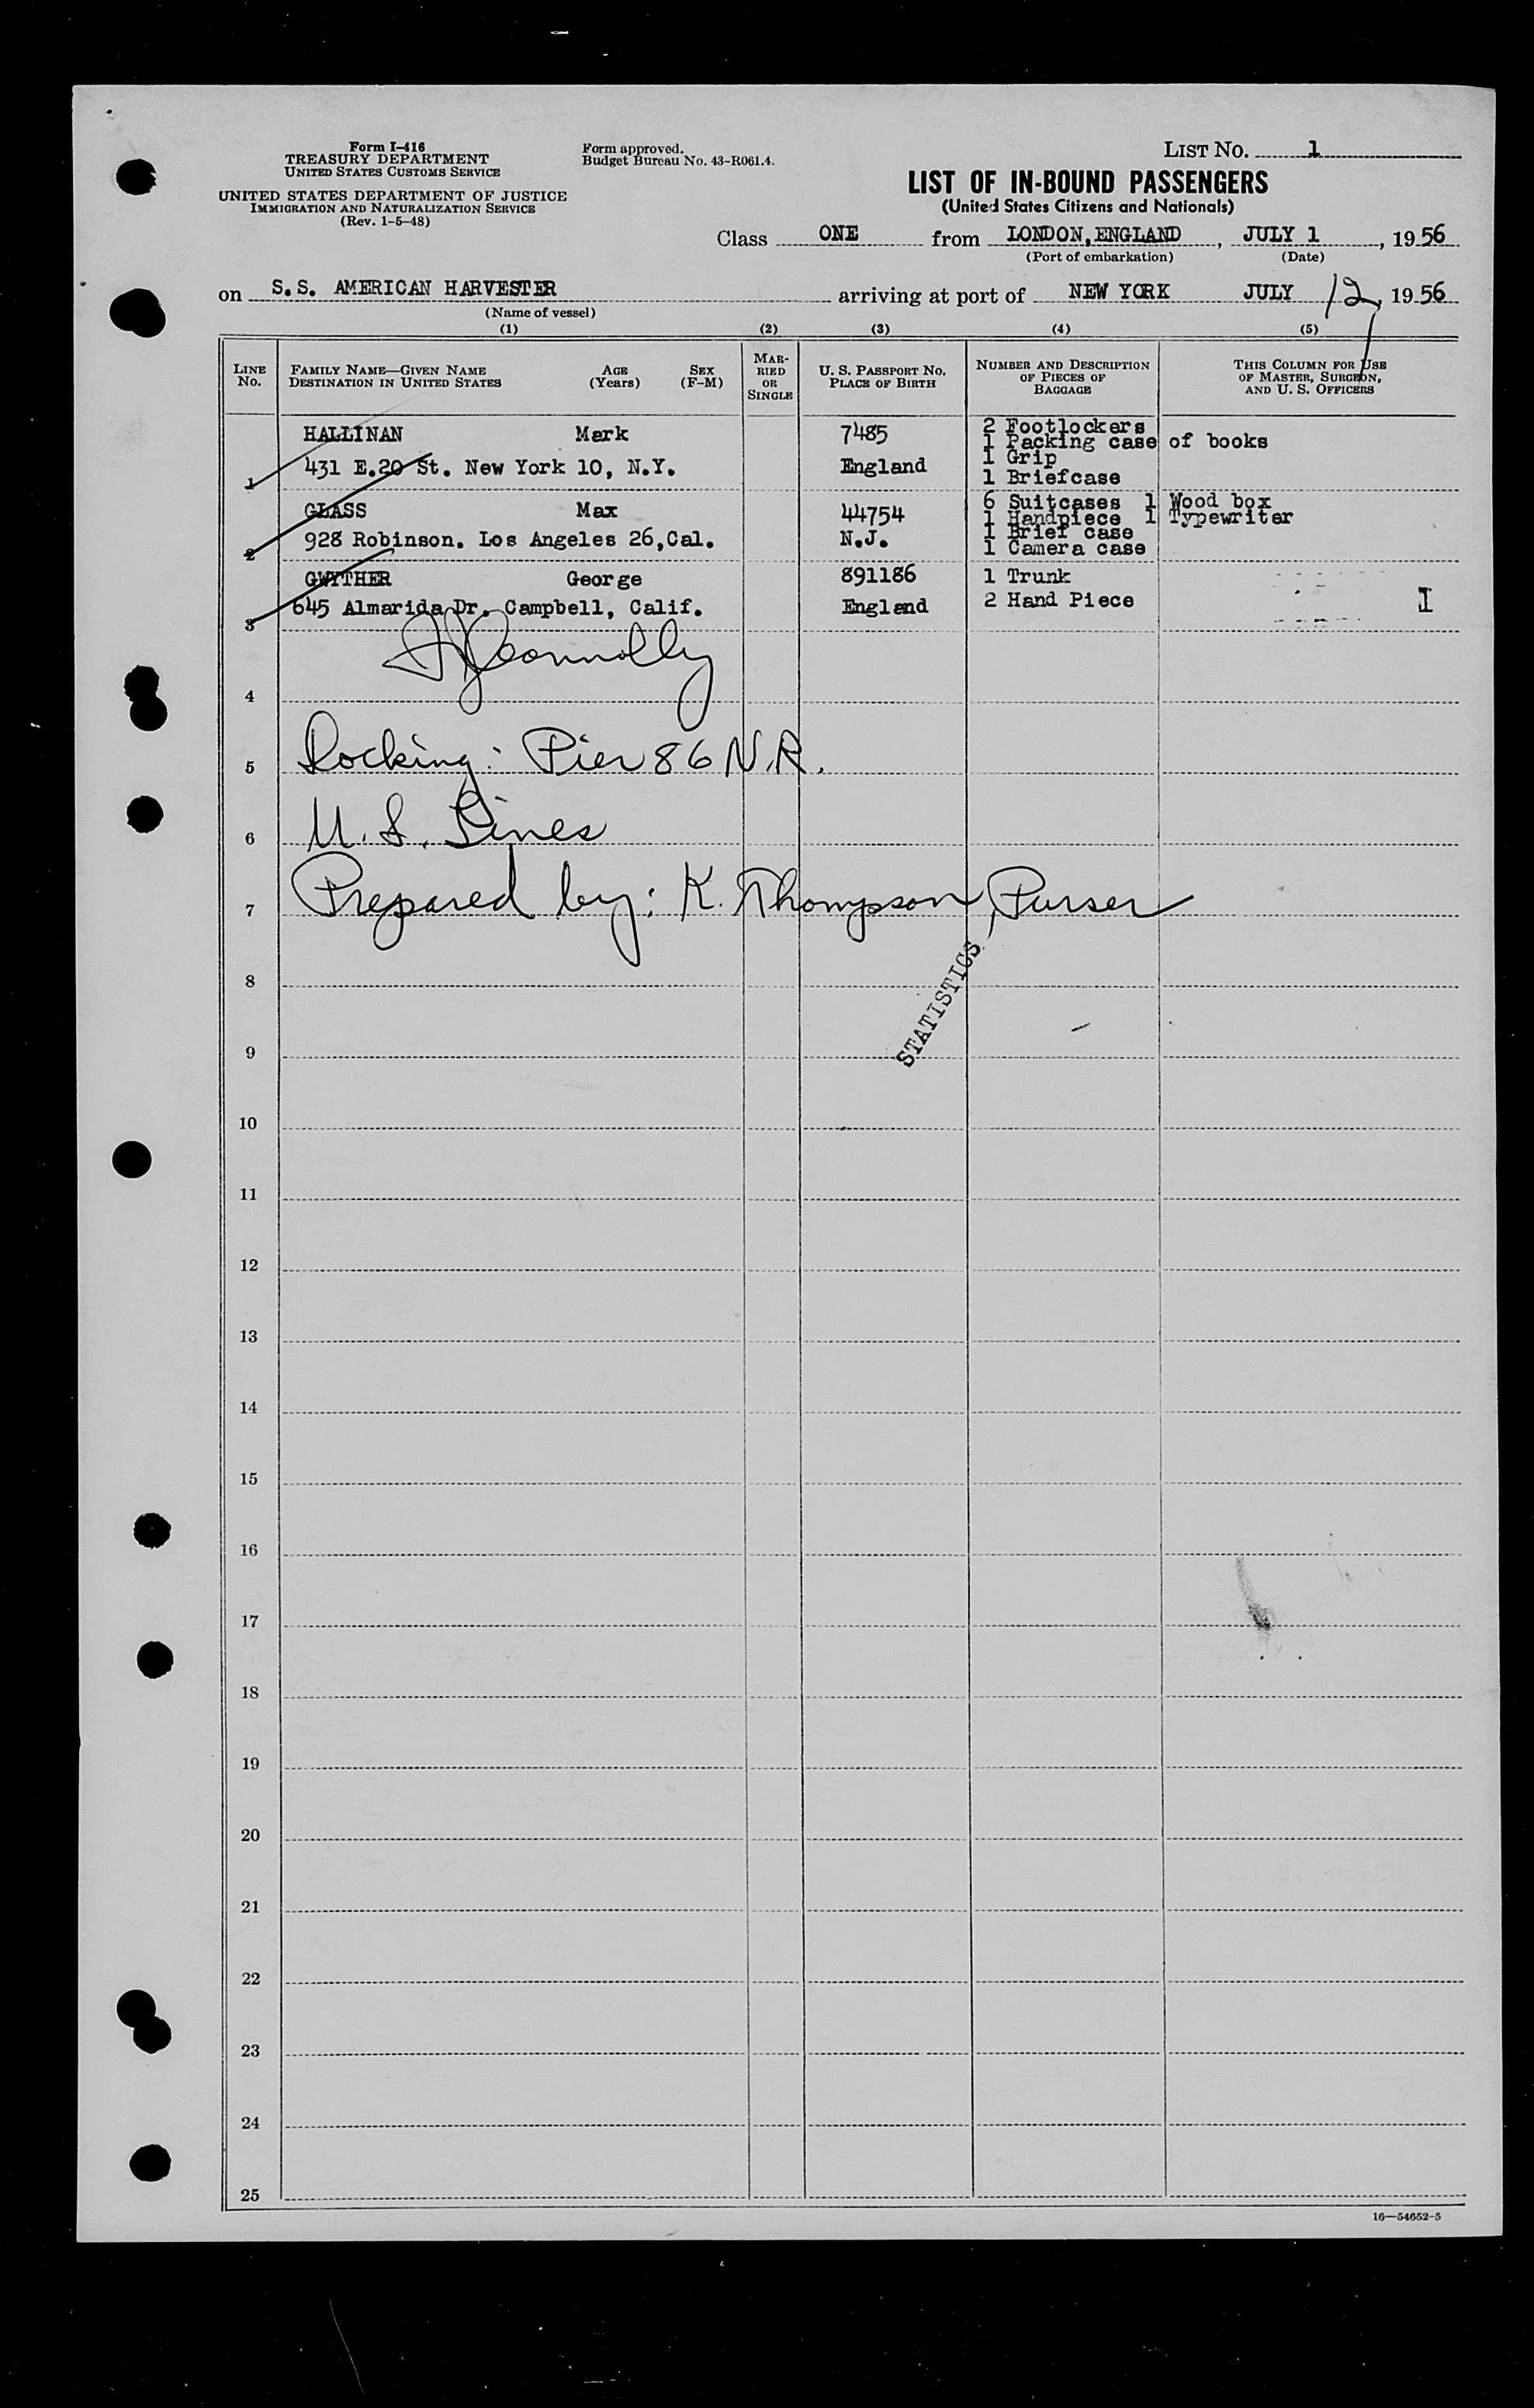 Form I-416
TREASURY DEPARTMENT
UNITED STATES CUSTOMS SERVICE
UNITED STATES DEPARTMENT OF JUSTICE
IMMIGRATION AND NATURALIZATION SERVICE
(Rev. 1-5-48)
Form approved.
Budget Bureau No. 43-R061.4.
LIST No. 1
LIST OF IN-BOUND PASSENGERS
(United States Citizens and Nationals)
Class ONE from LONDON, ENGLAND, JULY 1, 1956
(Port of embarkation) (Date)
on S.S. AMERICAN HARVESTER arriving at port of NEW YORK JULY 12, 1956
(Name of vessel)
(1) (2) (3) (4) (5)
LINE No. FAMILY NAME—GIVEN NAME DESTINATION IN UNITED STATES AGE (Years) SEX (F-M) MARRIED OR SINGLE U. S. PASSPORT No. PLACE OF BIRTH NUMBER AND DESCRIPTION OF PIECES OF BAGGAGE THIS COLUMN FOR USE OF MASTER, SURGEON, AND U. S. OFFICERS
HALLINAN Mark 7485 2 Footlockers
1 Packing case of books
1 431 E.20 St. New York 10, N.Y. England 1 Grip
1 Briefcase
GLASS Max 44754 6 Suitcases 1 Wood box
1 Handpiece 1 Typewriter
2 928 Robinson. Los Angeles 26,Cal. N.J. 1 Brief case
1 Camera case
GWYTHER George 891186 1 Trunk
3 645 Almarida Dr. Campbell, Calif. England 2 Hand Piece I
Connolly
4
5 Docking: Pier 86 N.R.
6 U.S. Lines
7 Prepared by: K. Thompson, Purser
STATISTICS
8
9
10
11
12
13
14
15
16
17
18
19
20
21
22
23
24
25
16—54652-5